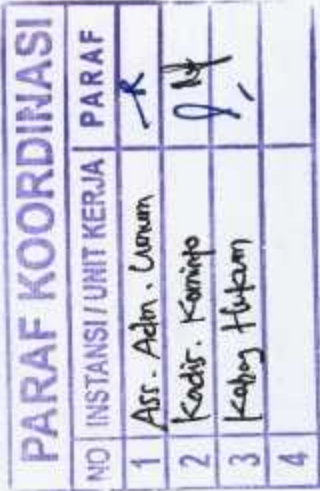 PARAF KOORDINASI
NO INSTANSI / UNIT KERJA PARAF
1 Ass. Adm. Umum
2 Kadis. Kominfo
3 Kabag Hukum
4